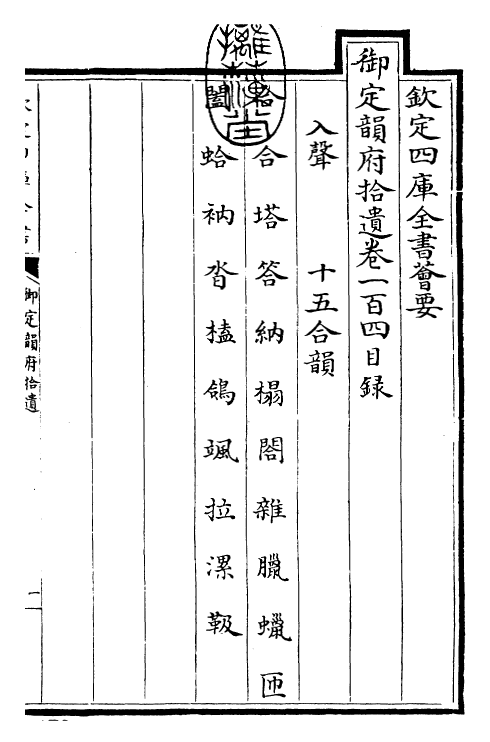 欽定四庫全書薈要
御定韻府拾遺卷一百四目録
入聲 十五合韻
合 塔 答 納 榻 閤 雜 臘 蠟 匝
闔 蛤 衲 沓 榼 鴿 颯 拉 漯 靸
御定韻府拾遺